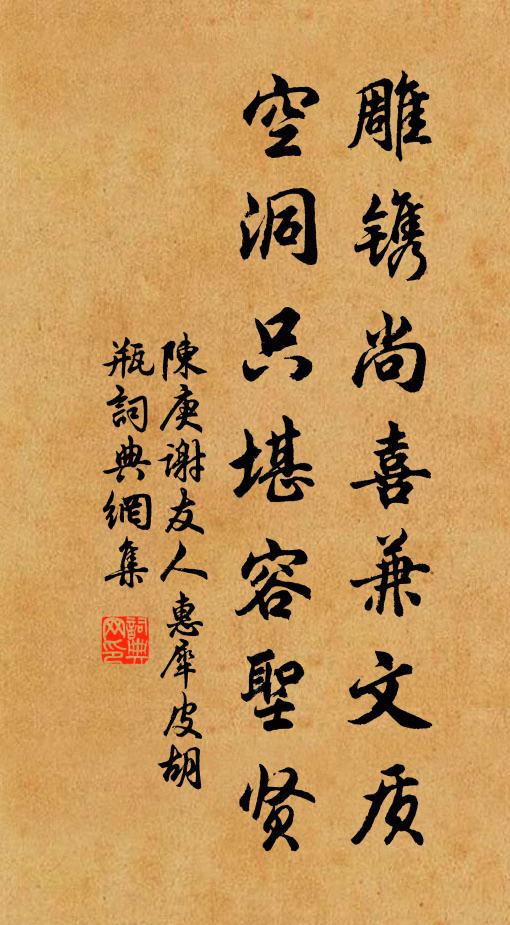 雕镌尚喜兼文质
空洞只堪容聖贤
陳庚谢友人惠犀皮胡
瓶詞典網集
詞典网印